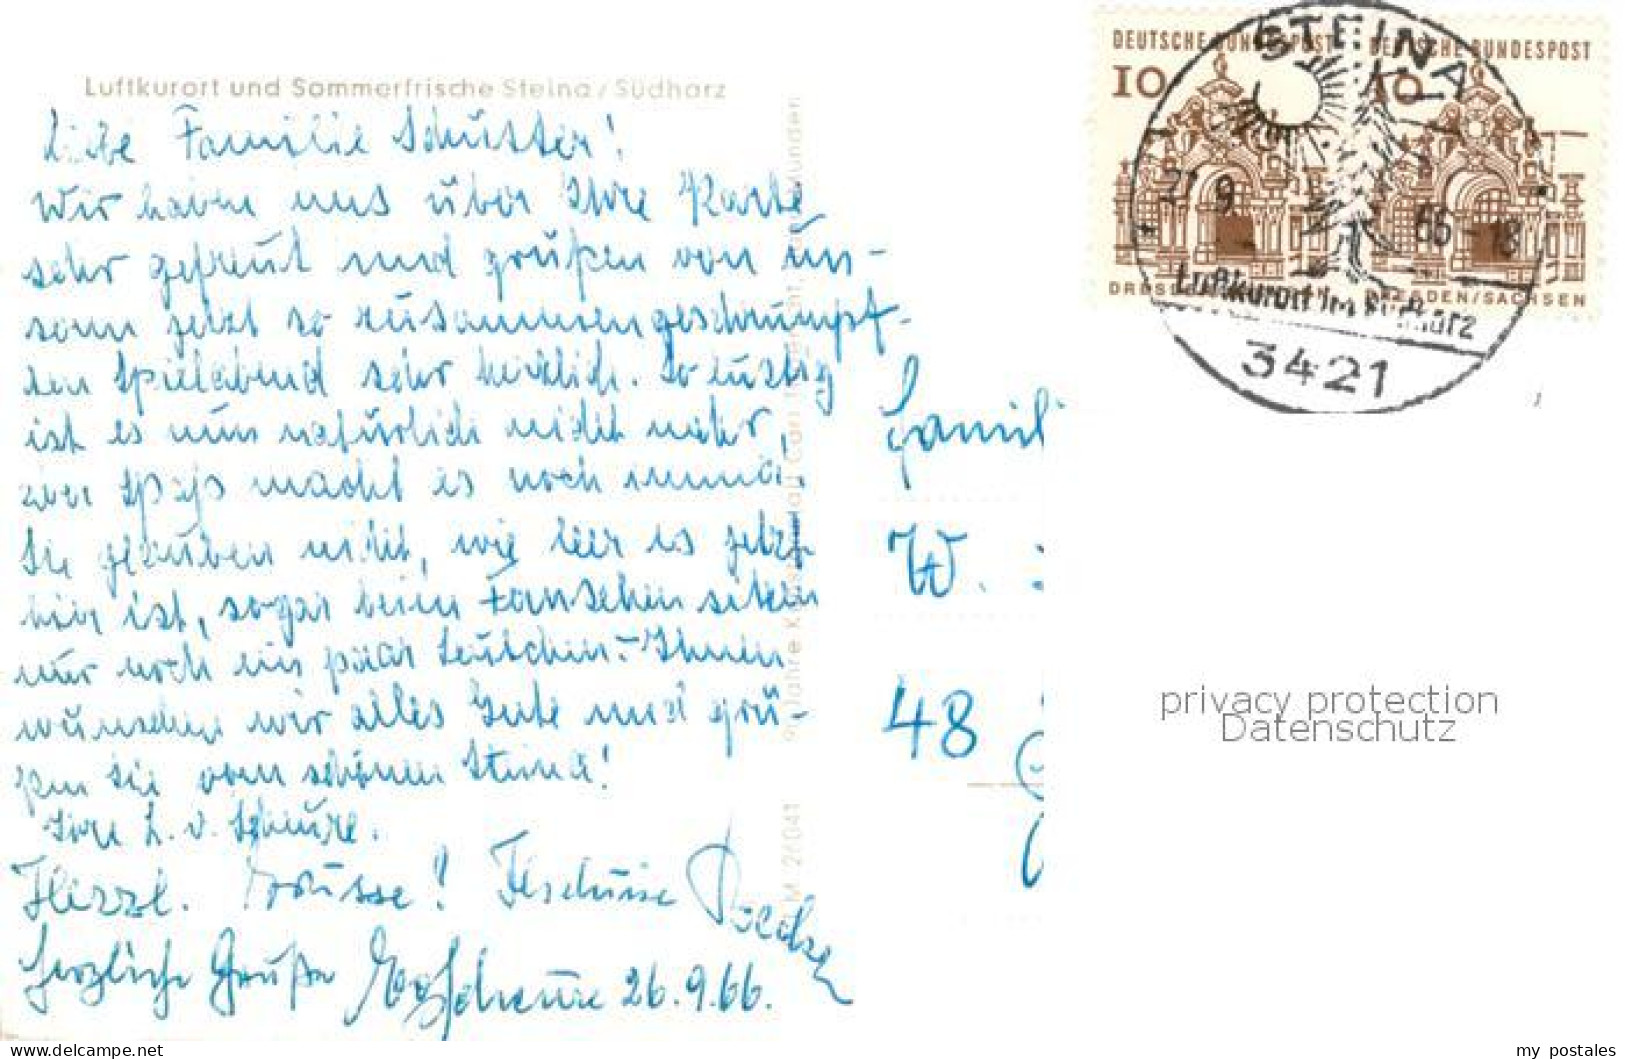 Luftkurort und Sommerfrische Steina / Südharz
Liebe Familie Schuster!
Wir haben uns über Ihre Karte
sehr gefreut und grüßen von un-
serm jetzt so zusammengeschrumpf-
ten Spielabend sehr herzlich. So lustig
ist es nun natürlich nicht mehr,
aber Spaß macht es noch immer.
Sie glauben nicht, wie leer es jetzt
hier ist, sogar beim Fernsehen sitzen
nur noch ein paar Leutchen. Ihnen
wünschen wir alles Gute und grü-
ßen Sie vom schönen Steina!
Ihre L. v.
Herzl. Grüsse!
herzliche Grüße 26.9.66.
Famil
W.
48
DEUTSCHE BUNDESPOST
10
DRESDEN/SACHSEN
DEUTSCHE BUNDESPOST
10
DRESDEN/SACHSEN
STEINA
27.9.66-18
Luftkurort im Südharz
3421
privacy protection
Datenschutz
my postales
www.delcampe.net